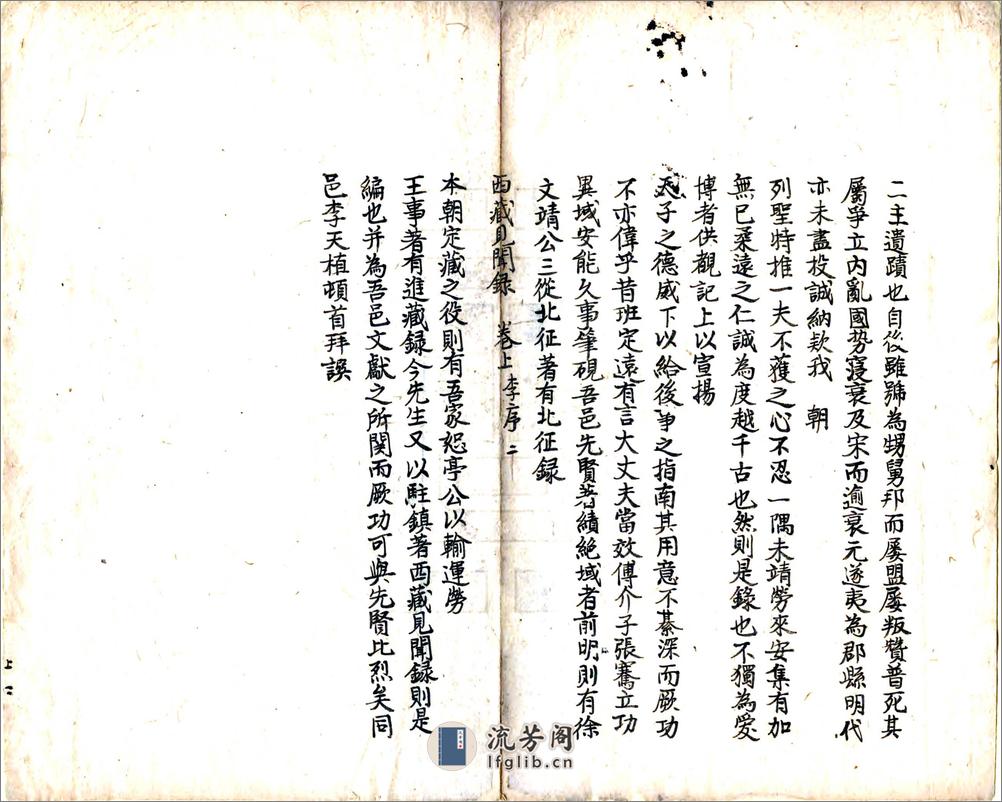 二主遺蹟也自後雖號為甥舅邦而屢盟屢叛贊普死其
屬爭立內亂國势寖衰及宋而逾衰元遂夷為郡縣明代
亦未盡投誠納欵我　朝
列聖特推一夫不獲之心不忍一隅未靖勞來安集有加
無已柔遠之仁誠為度越千古也然則是錄也不獨為愛
博者供觀記上以宣揚
天子之德威下以給後事之指南其用意不綦深而厥功
不亦偉乎昔班定遠有言大丈夫當效傅介子張騫立功
異域安能久事筆硯吾邑先賢著績絕域者前明則有徐
文靖公三從北征著有北征録
西藏見聞録　卷上　李序　二
本朝定藏之役則有吾家恕亭公以輸運勞
王事著有進藏録今先生又以駐鎮著西藏見聞錄則是
編也并為吾邑文獻之所関而厥功可與先賢比烈矣同
邑李天植頓首拜誤
上二
流芳阁
lfglib.cn